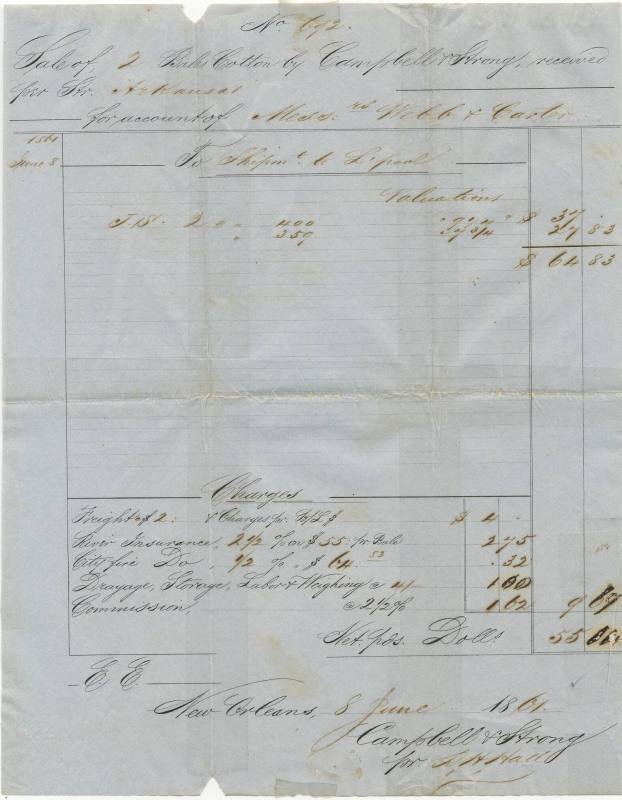 No 692.
Sale of 2 Bales Cotton by Campbell & Strong, received
per Str. Arkansas
for account of Mess:rs Webb & Carter
1861
June 8
To Shipmt to L'pool
Valuations
2 " " 400 " 9 1/4 " $ 37 .
" 359 " 7 3/4 27 83
$ 64 83
Charges
Freight of 2: & Charges pr. B/L $ $ 4 .
River Insurance, 2 1/2 % on $ 55. pr Bale 2 75
City fire Do, 1/2 % " $ 64 83 . 32
Drayage, Storage, Labor & Weighing @ 1 00
Commission, @ 2 1/2 % 1 62 9 69
Net. pds. Dolls. 55
E. E.
New Orleans, 8 June 1861
Campbell & Strong
pr.